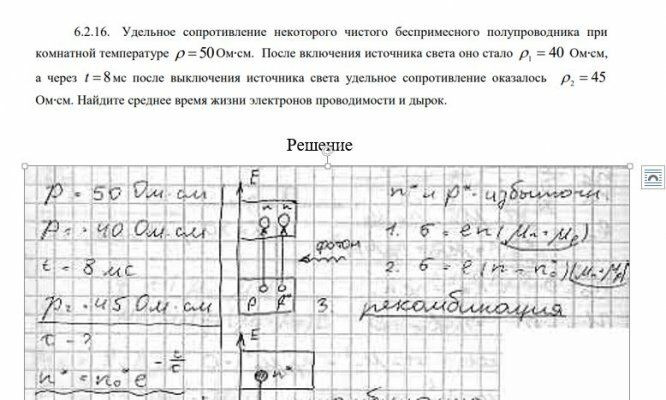 6.2.16. Удельное сопротивление некоторого чистого беспримесного полупроводника при
комнатной температуре ρ = 50 Ом·см. После включения источника света оно стало ρ₁ = 40 Ом·см,
а через t = 8 мс после выключения источника света удельное сопротивление оказалось ρ₂ = 45
Ом·см. Найдите среднее время жизни электронов проводимости и дырок.
Решение
ρ = 50 Ом·см
ρ₁ = 40 Ом·см
t = 8 мс
ρ₂ = 45 Ом·см
τ - ?
n* = n₀* e^(-t/τ)
E
n n
фотон
p p*
E
n*
n* и p* - избыточн.
1. σ = en(μn + μp)
2. σ = e(n + n₀*)(μn + μp)
3. рекомбинация